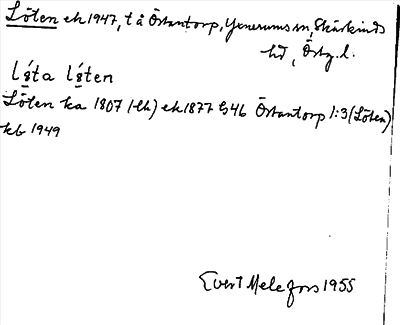 Löten ek 1947, t å Östantorp, Yxnerums sn, Skärkinds
hd, Östg. l.
lǿta lǿten
Löten ka 1807 (-lk) ek 1877 bl 46 Östantorp 1:3 (Löten)
kb 1949
Evert Melefors 1955